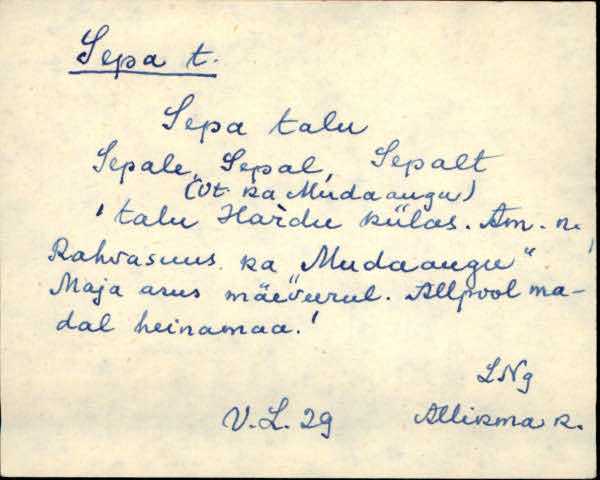 Sepa t.
Sepa talu
Sepale, Sepal, Sepalt
(Vt. ka Mudaaugu)
' talu Hardu külas. Am. n.
Rahvasuus ka „Mudaaugu"
Maja asus mäeveerul. Allpool ma-
dal heinamaa.'
LNg
V.L. 29 Allikma k.